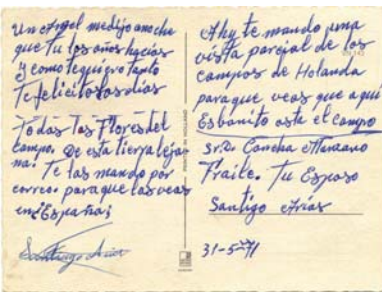 un Angel medijo anoche
que Tu los años hacias
y como tequiero tanto
Te felicitolosdias
Todas las Floresdel
campo. De esta Tierra leja
na. Te las mando por
correo. paraque lasveas
en ¡España!
Santiago Arias
Ahy te mando una
vista parcial de los
campos de Holanda
paraque veas que aqui
Esbonito asta el campo
Srª Concha Manzano
Fraile. Tu Esposo
Santigo Arias
31-5-71
PRINTED IN HOLLAND